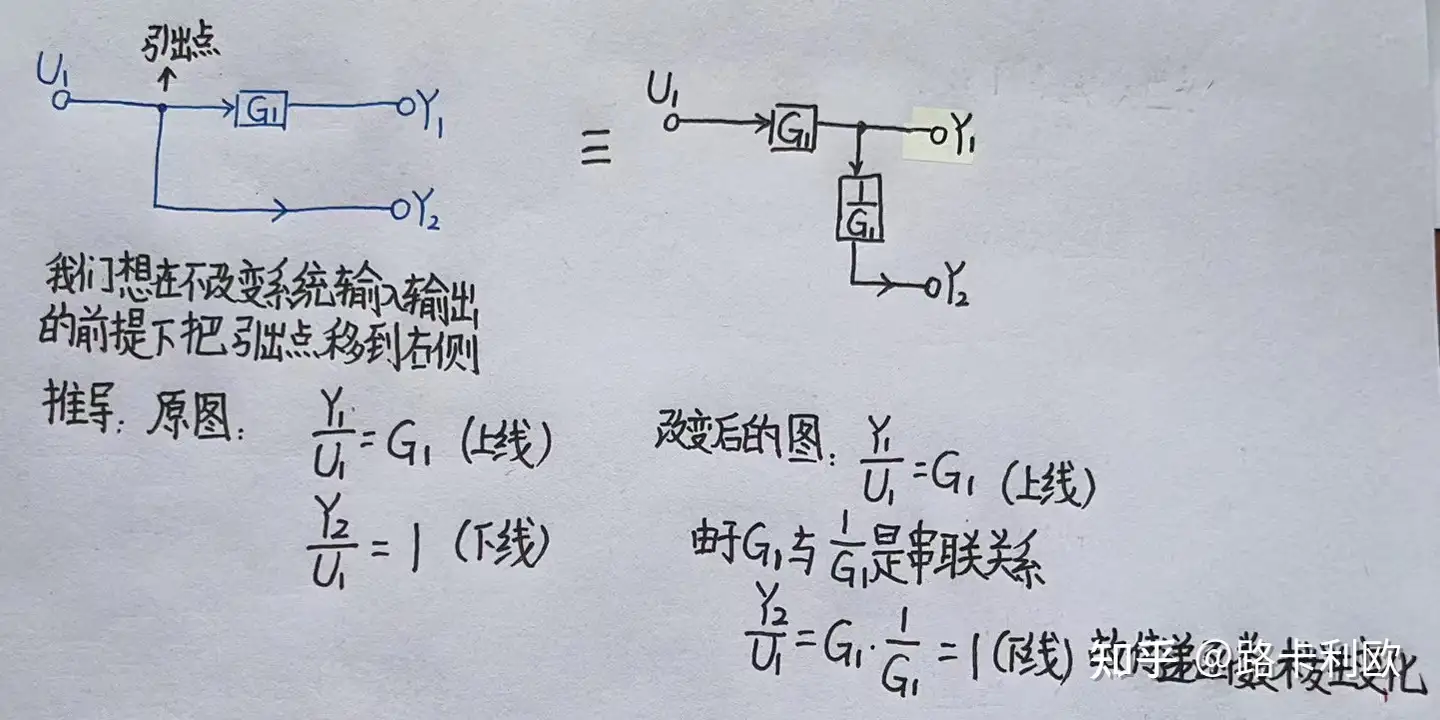 引出点
U₁
G₁
Y₁
Y₂
≡
U₁
G₁
Y₁
1/G₁
Y₂
我们想在不改变系统输入输出
的前提下把引出点移到右侧
推导:原图: Y₁/U₁=G₁(上线)
Y₂/U₁=1(下线)
改变后的图: Y₁/U₁=G₁(上线)
由于G₁与1/G₁是串联关系
Y₂/U₁=G₁·1/G₁=1(下线)
知乎 @路卡利欧